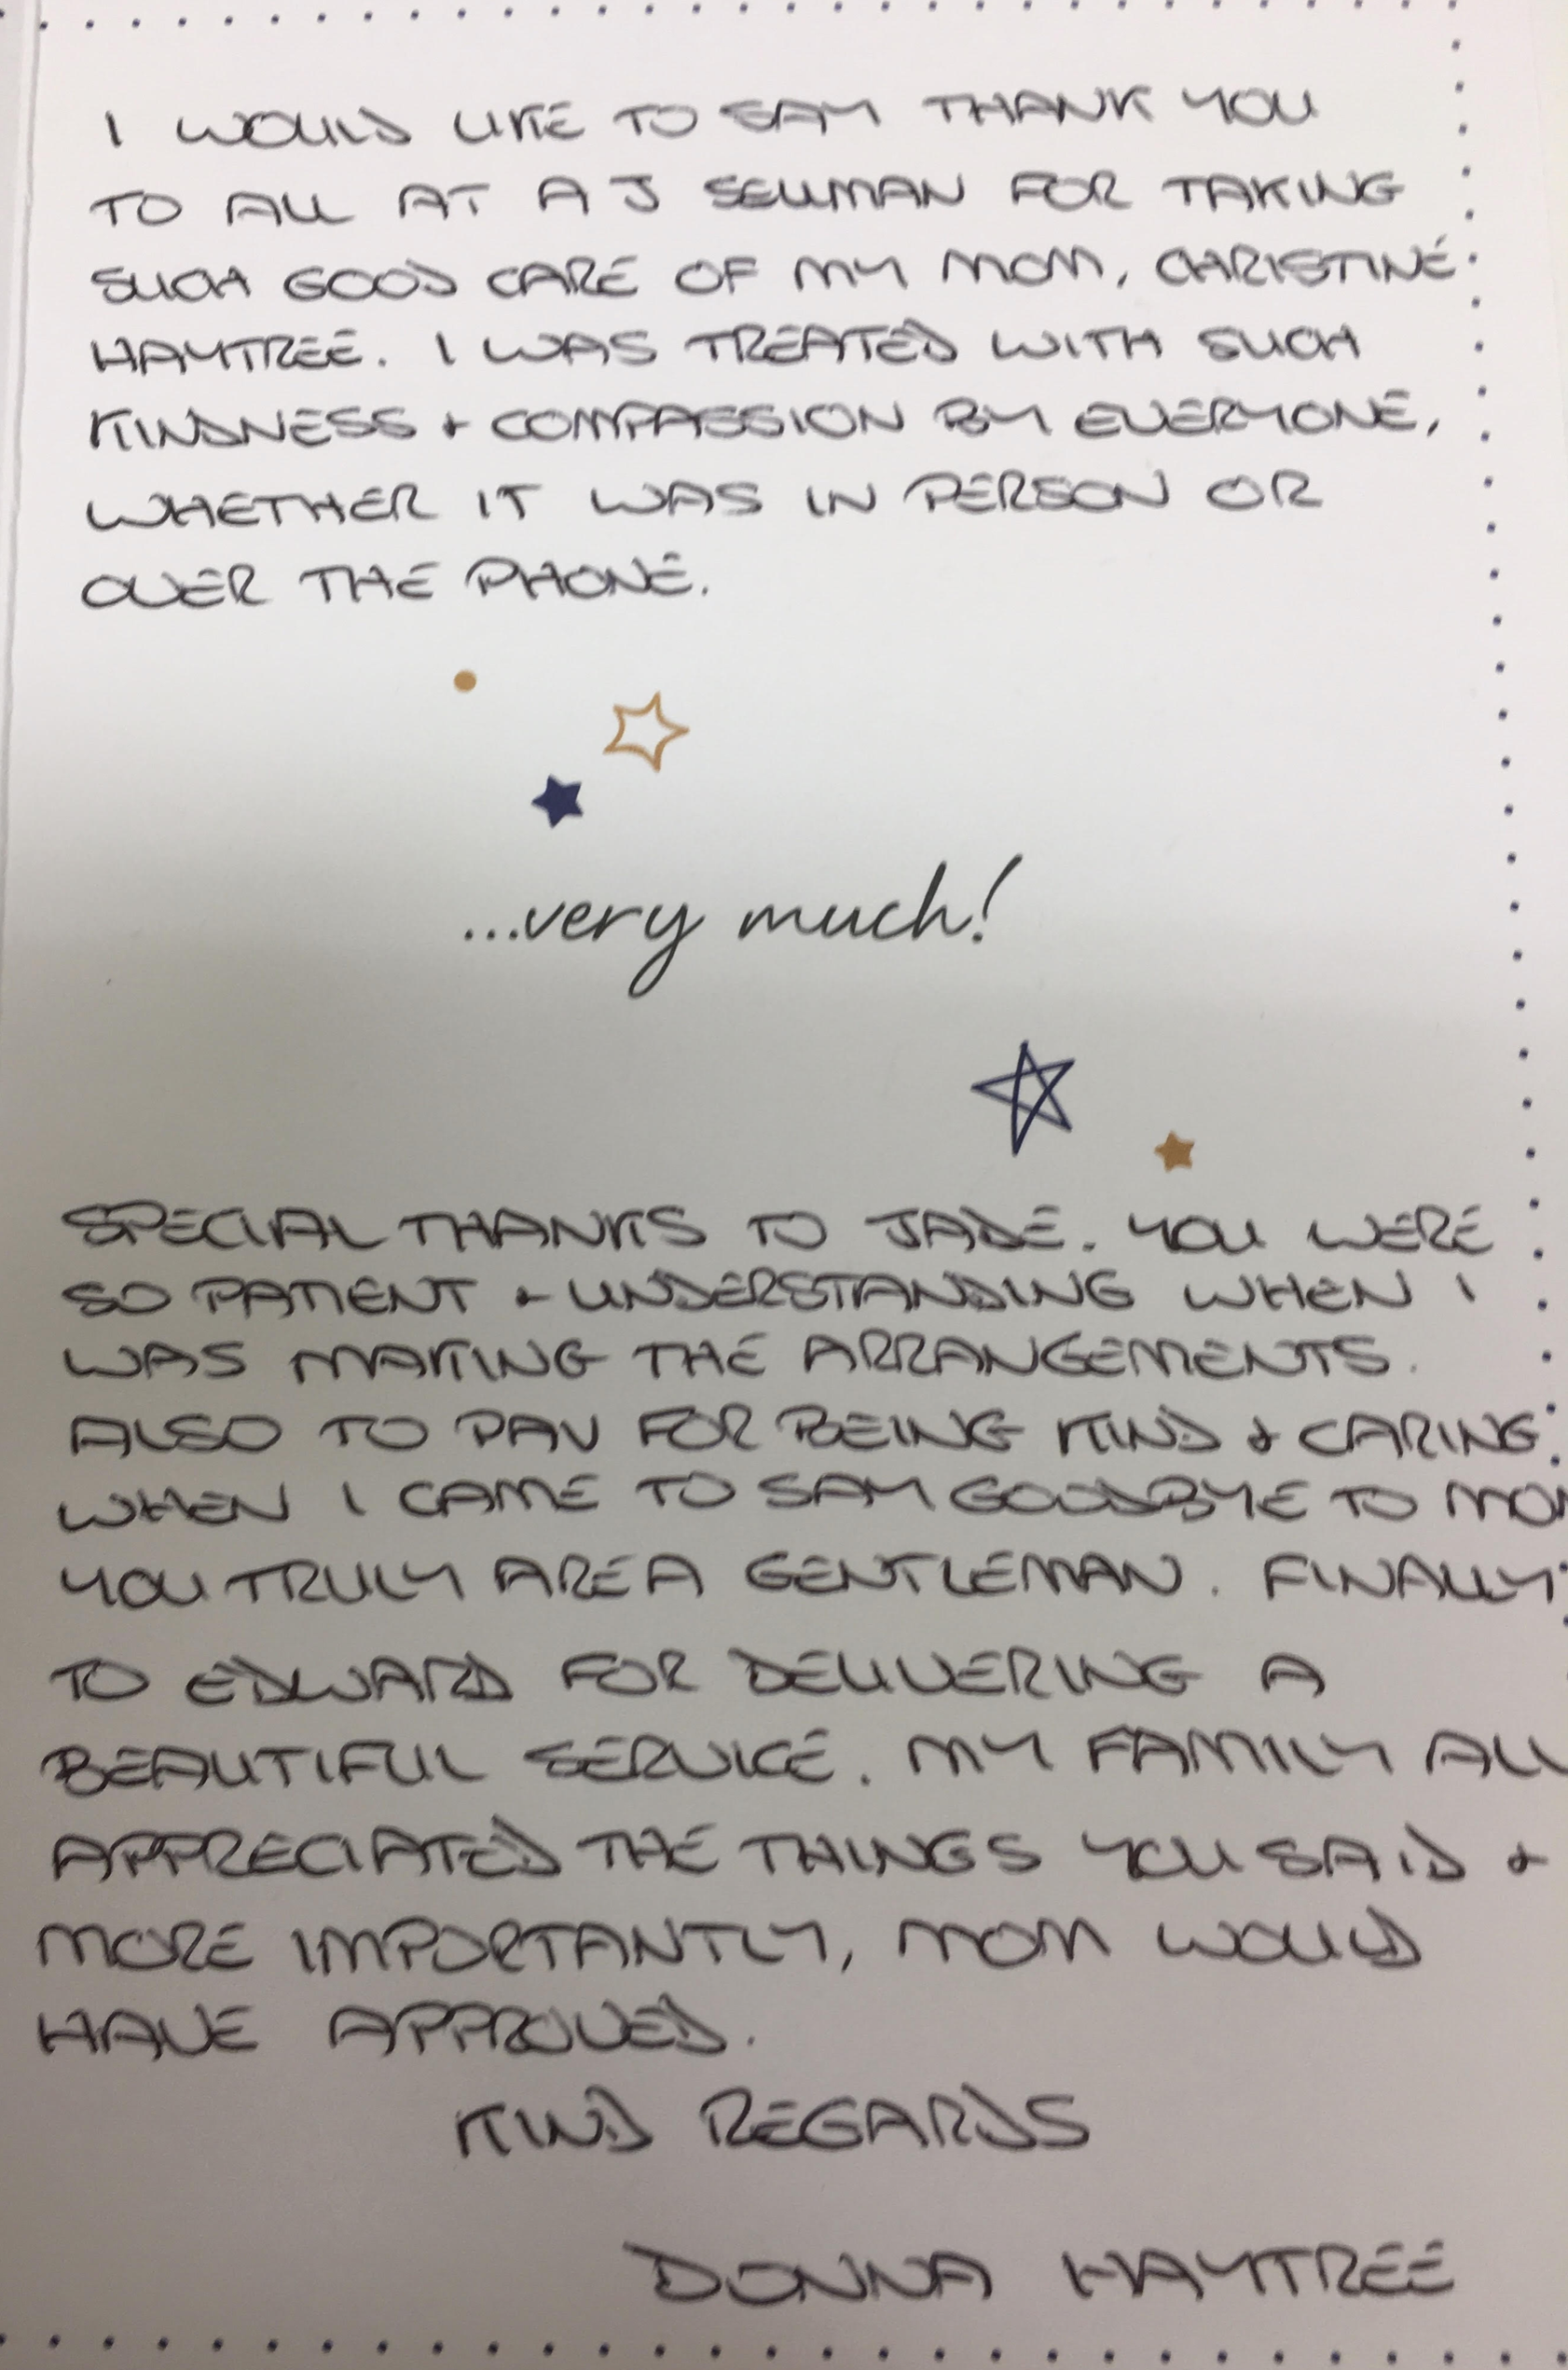 I WOULD LIKE TO SAY THANK YOU
TO ALL AT A J SELLMAN FOR TAKING
SUCH GOOD CARE OF MY MOM, CHRISTINE
HAYTREE. I WAS TREATED WITH SUCH
KINDNESS + COMPASSION BY EVERYONE,
WHETHER IT WAS IN PERSON OR
OVER THE PHONE.
...very much!
SPECIAL THANKS TO JADE. YOU WERE
SO PATIENT + UNDERSTANDING WHEN I
WAS MAKING THE ARRANGEMENTS.
ALSO TO PAV FOR BEING KIND + CARING
WHEN I CAME TO SAY GOODBYE TO MOM
YOU TRULY ARE A GENTLEMAN. FINALLY
TO EDWARD FOR DELIVERING A
BEAUTIFUL SERVICE. MY FAMILY ALL
APPRECIATED THE THINGS YOU SAID +
MORE IMPORTANTLY, MOM WOULD
HAVE APPROVED.
KIND REGARDS
DONNA HAYTREE